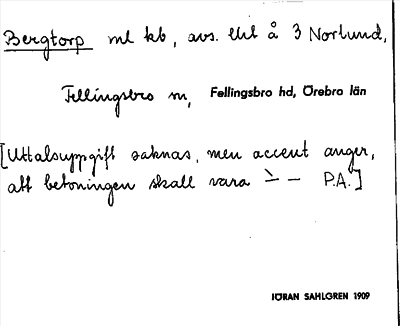 Bergtorp ml kb, avs. Ekl å 3 Norlund,
Fellingsbro sn, Fellingsbro hd, Örebro län
[Uttalsuppgift saknas, men accent anger,
att betoningen skall vara – – P.A.]
JÖRAN SAHLGREN 1909